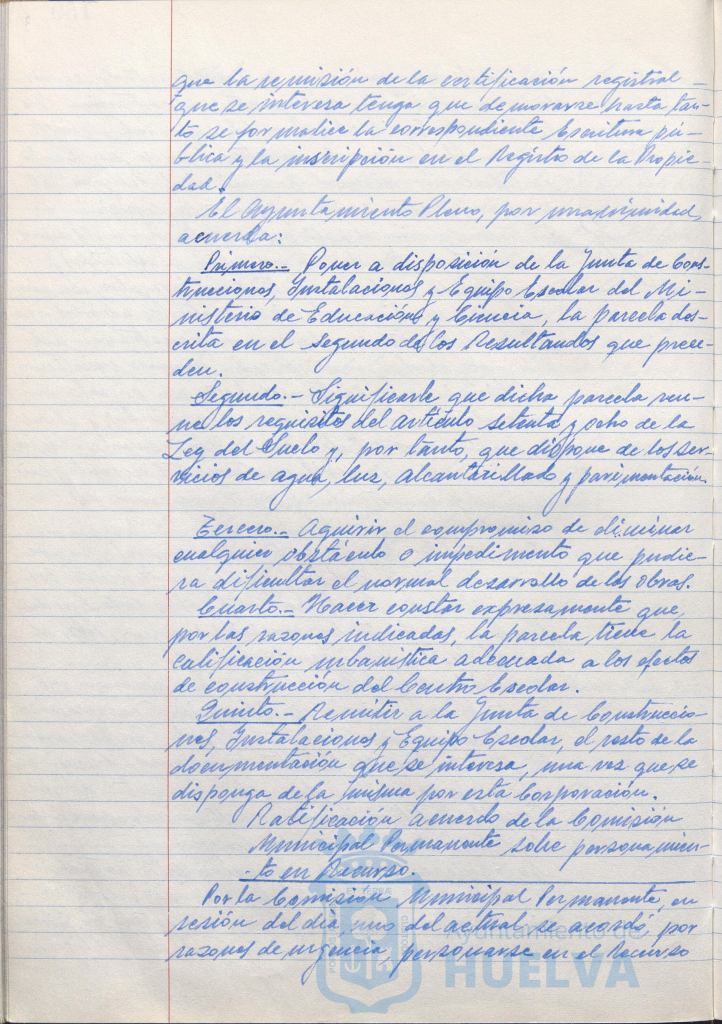 que la remisión de la certificación registral -
que se interesa tenga que demorarse hasta tan-
to se formalice la correspondiente Escritura pú-
blica y la inscripción en el Registro de la Propie-
dad.
El Ayuntamiento Pleno, por unanimidad,
acuerda:
Primero.- Poner a disposición de la Junta de Cons-
trucciones, Instalaciones y Equipo Escolar del Mi-
nisterio de Educación y Ciencia, la parcela des-
crita en el segundo de los Resultandos que prece-
den.
Segundo.- Significarle que dicha parcela reu-
ne los requisitos del artículo setenta y ocho de la
Ley del Suelo y, por tanto, que dispone de los ser-
vicios de agua, luz, alcantarillado y pavimentación.
Tercero.- Aquirir el compromiso de eliminar
cualquier obstáculo o impedimento que pudie-
ra dificultar el normal desarrollo de las obras.
Cuarto.- Hacer constar expresamente que,
por las razones indicadas, la parcela tiene la
calificación urbanística adecuada a los efectos
de construcción del Centro Escolar.
Quinto.- Remitir a la Junta de Construccio-
nes, Instalaciones y Equipo Escolar, el resto de la
documentación que se interesa, una vez que se
disponga de la misma por esta Corporación.
Ratificación acuerdo de la Comisión
Municipal Permanente sobre personamien-
to en Recurso.
Por la Comisión Municipal Permanente, en
sesión del día uno del actual se acordó, por
razones de urgencia, personarse en el Recurso
Ayuntamiento de
HUELVA